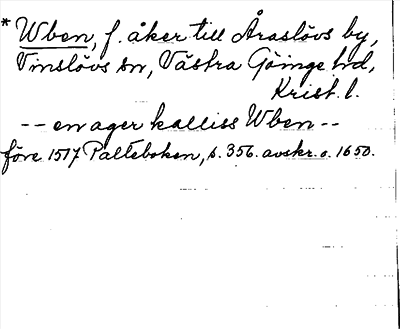 * Wben, f. åker till Åraslövs by,
Vinslövs sn, Västra Göinge hd,
Krist. l.
-- en ager kalliss Wben --
före 1517 Palteboken, s. 356. avskr. o. 1650.